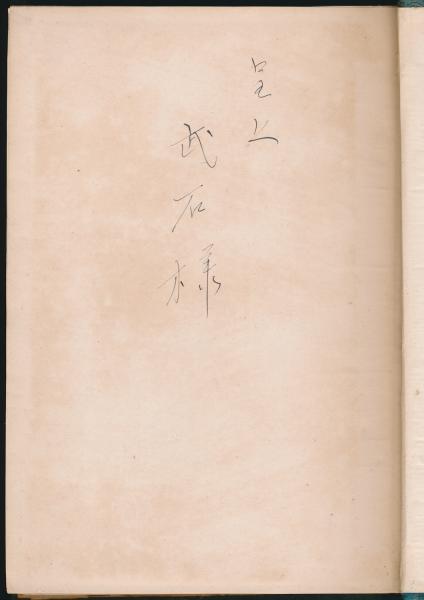 呈上
武石様